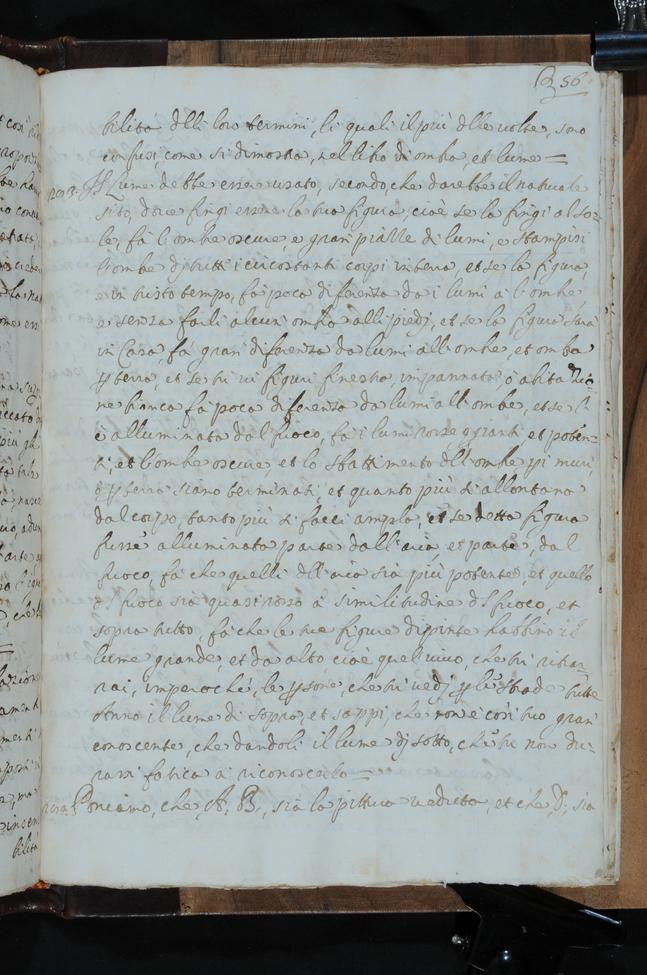 56
bilità dlli loro termini, li quali il più dlle volte, sono
confusi, come si dimostra, nel libro di ombra, et lume =
Il Lume debbe esser usato, secondo, che darebbe il naturale
sito, dove fingi essere la tua figura, cioè se la fingi al so-
le, fà l'ombre oscure, e gran piazze di lumi, e stampisi
l'ombre dj tutti i circostanti corpi in terra, et se la figura,
è in tristo tempo, fà poca diferenza da i lumi à l'ombre
e senza farli alcun' ombra alli piedj, et se la figura sarà
in Casa, fà gran diferenza da lumi all'ombre, et ombra
p terra, et se tu vi figuri finestra, impannata, ò abitazio-
ne bianca fà poca diferenza da lumi all'ombre, et se l
è alluminata dal fuoco, fà i lumi rosseggianti, et poten-
ti, et l'ombre oscure, et lo sbattimento dll'ombre pi muri
ò p terra siano terminati, et quanto più si allontana
dal corpo, tanto più si facci ampla, et se detta figura
fusse alluminata parte dall'aria, et parte, dal
fuoco, fà che quello dll'aria sia più potente, et quello
dl fuoco sia quasi rosso à similitudine dl fuoco, et
sopra tutto, fà che le tue figure dipinte habbino il
lume grande, et da alto cioè quel vivo, che tu ritrar-
rai, imperoche, le psone, che tu vedj p le strade tutte
anno il lume di sopra, et sappi, che non è così tuo gran
conoscente, che dandoli il lume dj sotto, che tu non du-
rassi fatica à riconoscerlo =
Poniamo, che, A, B, sia la pittura veduta, et che D, sia